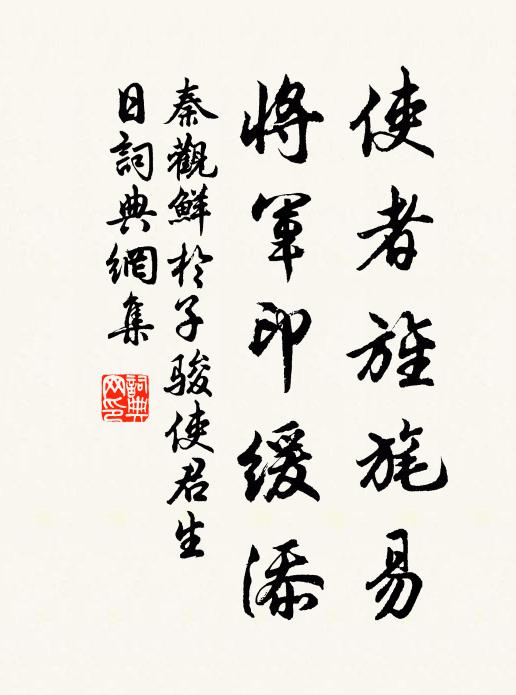 使者旌旄易
將軍印緩添
秦觀鮮於子駿使君生
日詞典網集
詞典网印